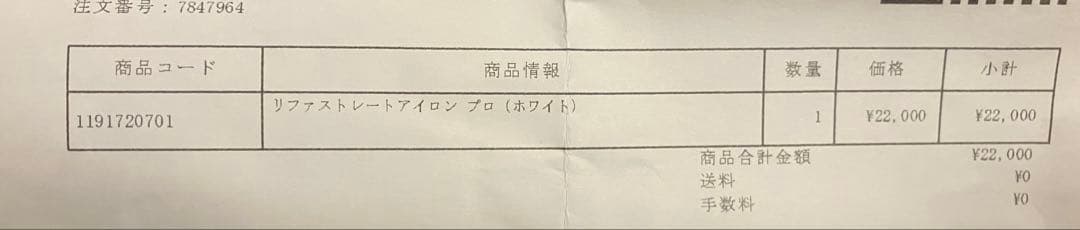 注文番号：7847964
商品コード 商品情報 数量 価格 小計
1191720701 リファストレートアイロン プロ（ホワイト） 1 ¥22,000 ¥22,000
商品合計金額 ¥22,000
送料 ¥0
手数料 ¥0